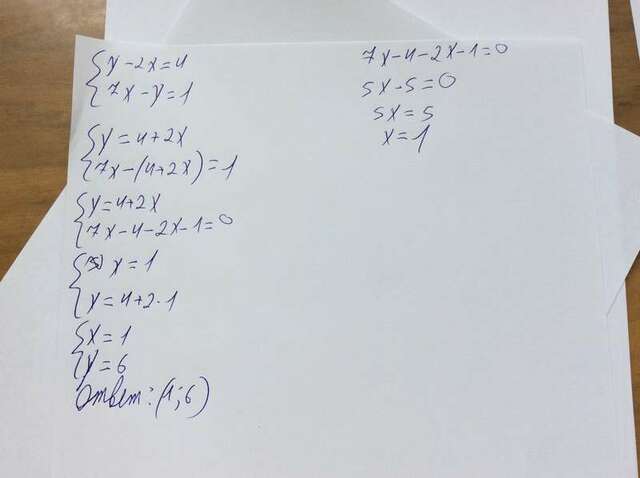 y-2x=4
7x-y=1
y=4+2x
7x-(4+2x)=1
y=4+2x
7x-4-2x-1=0
x=1
y=4+2·1
x=1
y=6
Ответ: (1;6)
7x-4-2x-1=0
5x-5=0
5x=5
x=1